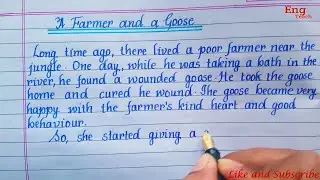 A Farmer and a Goose
Eng
Teach
Long time ago, there lived a poor farmer near the
jungle. One day, while he was taking a bath in the
river, he found a wounded goose. He took the goose
home and cured he wound. The goose became very
happy with the farmer's kind heart and good
behaviour.
So, she started giving a
Like and Subscribe